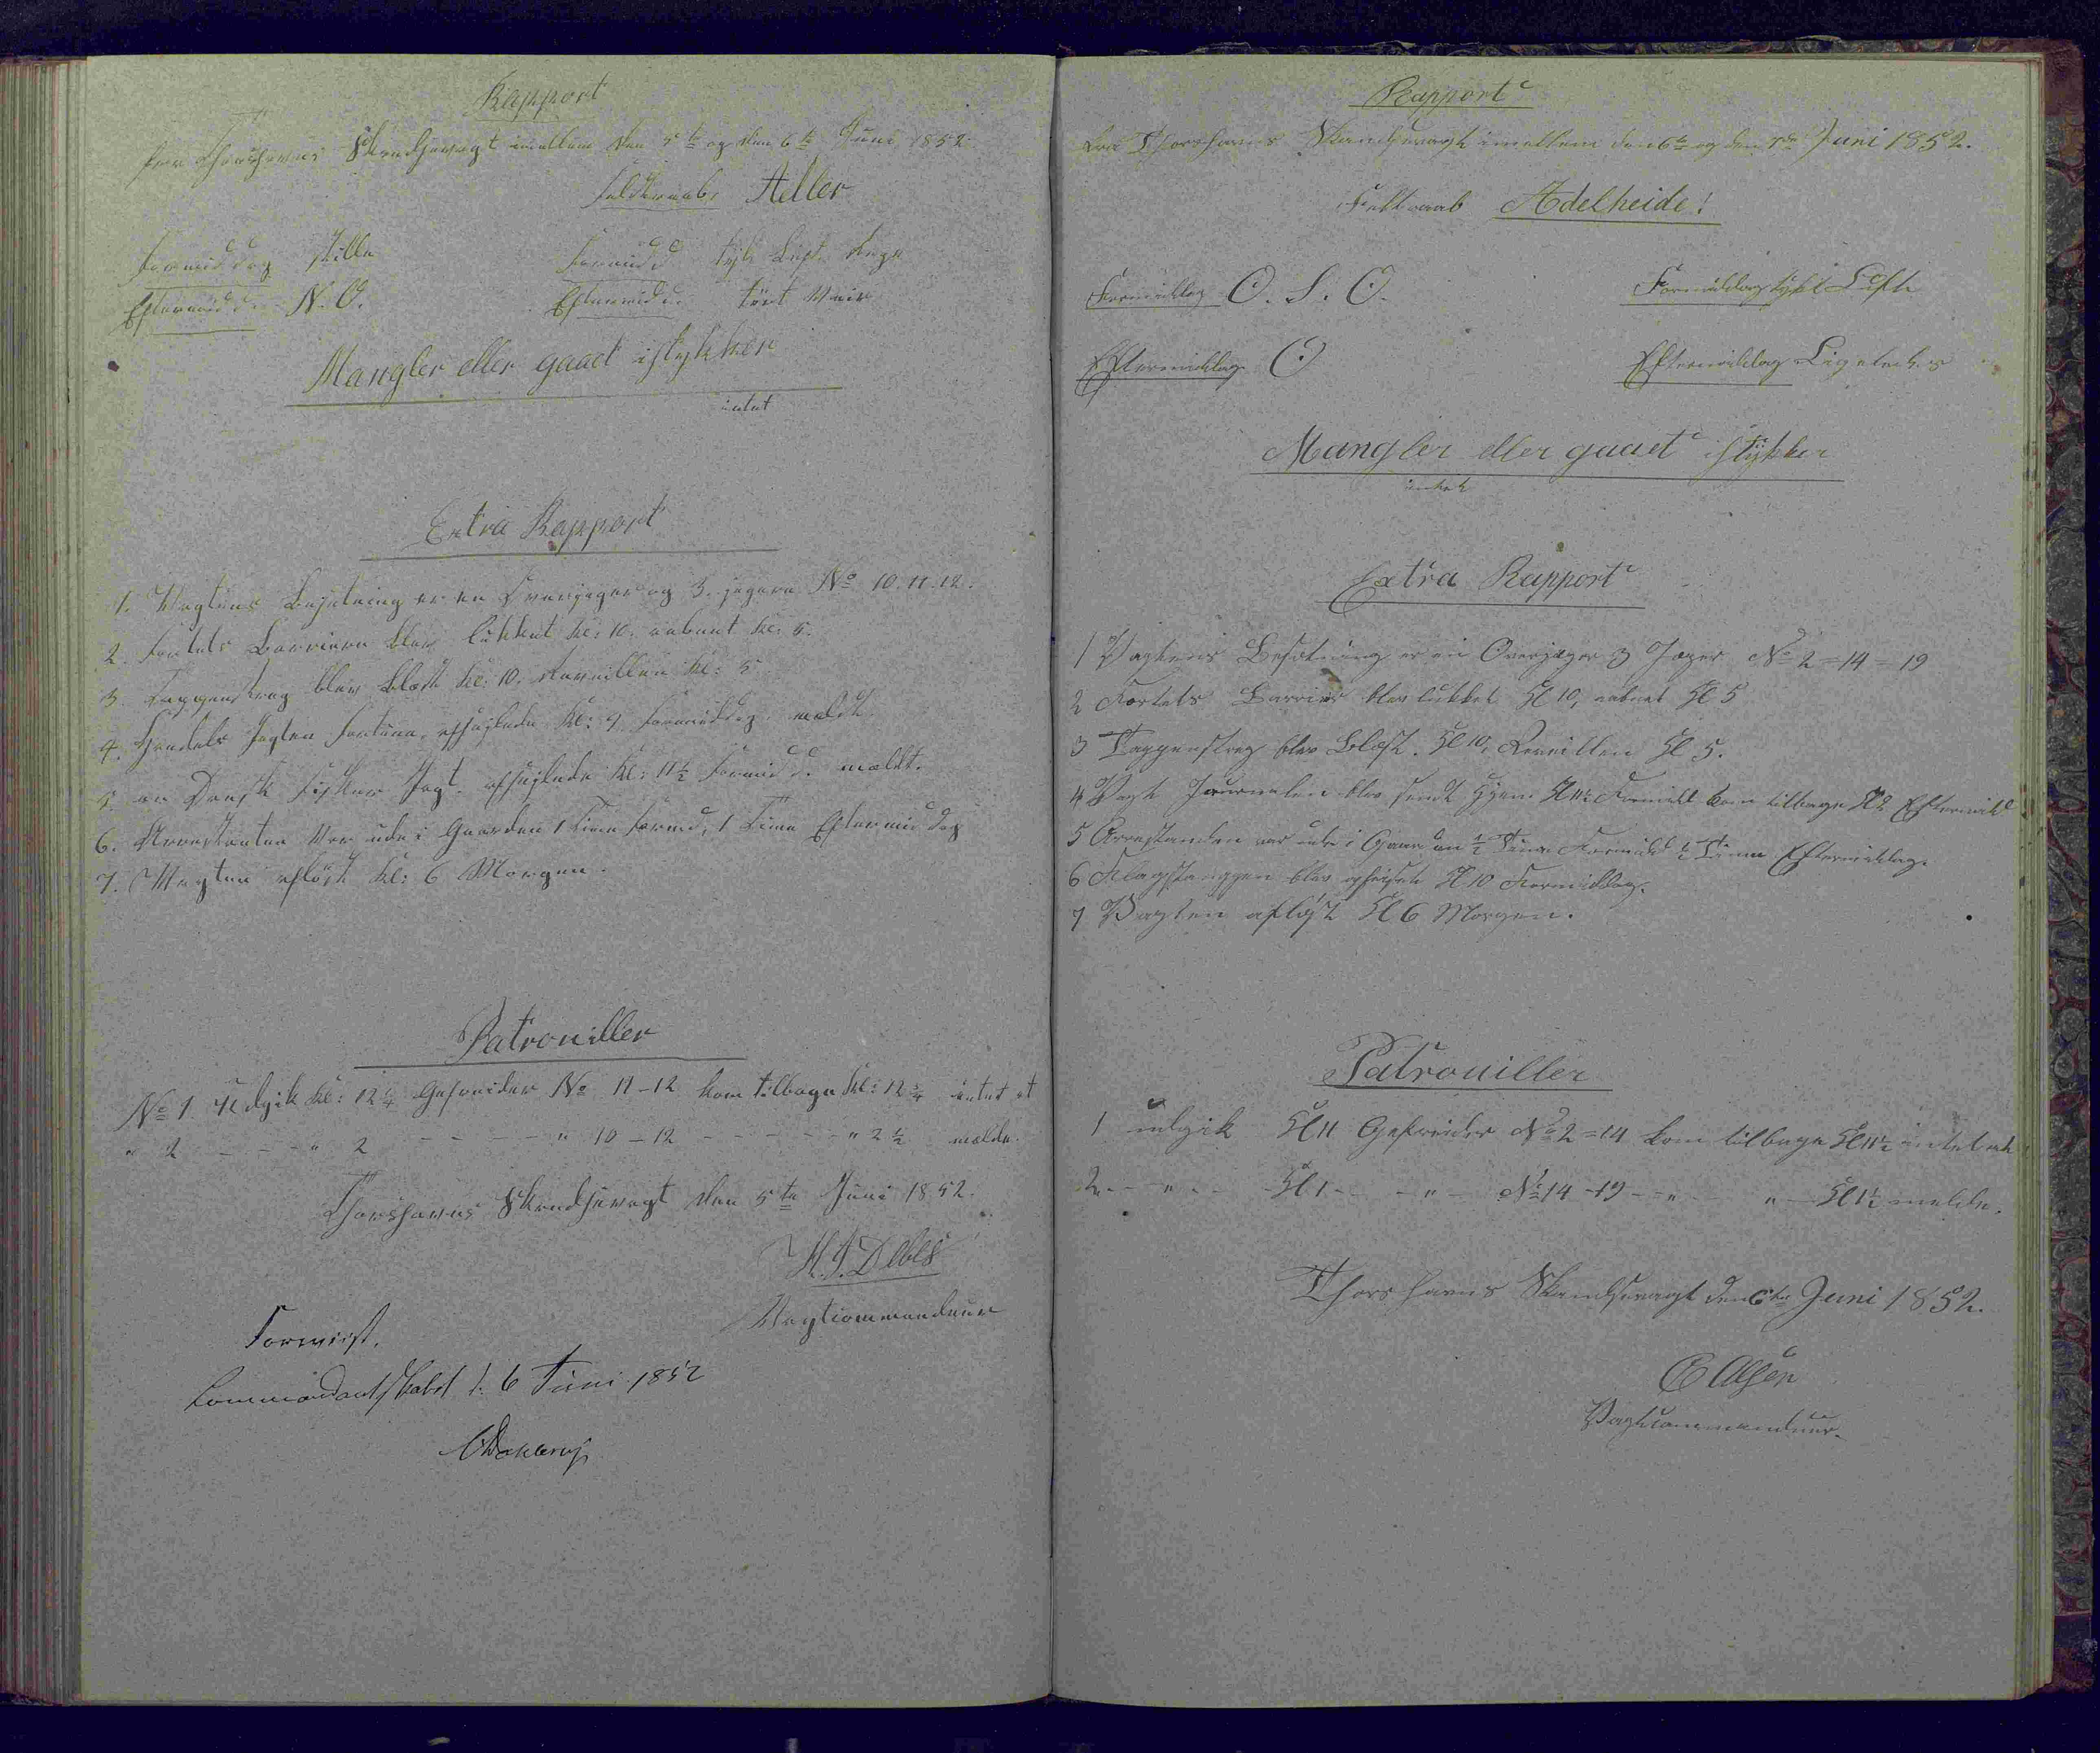 Rapport
fra Thorshavns Skandsevagt imellem den 5te og den 6te Juni 1852.
Feldtraab, Adler
Formiddag Stille Formidd tyk Luft Regn
Eftermidd. N.O. Eftermidd. tört Veir
Mangler eller gaaet istykker
intet
Extra Rapport
1. Vagtens Besætning er en Overjæger og 3 jægere No 10. 11. 12.
2. Fortets Barriere blev lukket Kl: 10. aabnet Kl: 5.
3. Tappenstreg blev blæst Kl: 10. Reveillen Kl: 5
4. Handels Jagten Fortuna, afseilede Kl: 9 Formiddag. meldt.
5. en Dansk Fisker Jagt. afseilede Kl: 11½ Formidd. meldt.
6. Arrestanten var ude i Gaarden 1 Time Formd, 1 Time Eftermiddag
7. Vagten aflöst Kl: 6 Morgen.
Patrouiller
No 1. Udgik Kl: 12¼ Gefreider No 11-12 kom tilbage Kl: 12¾ intet at
" 2 - - - " 2 - - - - " 10-12 - - - - - " 2½ melde.
Thorshavns Skandsevagt den 5te Juni 1852.
H.J. Debes
Vagtcommandeur
Forevist.
Commandantskabet d. 6 Juni 1852
Rapport
Fra Thorshavns Skandsevagt imellem den 6te og den 7de Juni 1852.
Feltraab Adelheide!
Formiddag O.S.O. Formiddag tykt Luft
Eftermiddag O Eftermiddag Ligeledes
Mangler eller gaaet istykker
intet
Extra Rapport
1 Vagtens Besætning er en Overjæger 3 Jæger No 2=14=19
2 Fortets Barrier blev lukket Kl 10, aabnet Kl 5
3 Tappenstreg blev Blæst. Kl 10, Reveillen Kl 5.
4 Vagt Journalen blev sendt Hjem Kl 11½ Formidd kom tilbage Kl 2 Eftermidd
5 Arrestanden var ude i Gaarden ½ Time Formidd ½ Time Eftermiddag.
6 Flagstanggen blev opheiset Kl 10 Formiddag.
7 Vagten afløst Kl 6 Morgen.
Patrouiller
1 udgik Kl 11 Gefreider No 2=14 kom tilbage Kl 11½ intet at
2 - " - - Kl 1 - - " - No 14-19 - " - " - Kl 1½ melde.
Thorshavns Skandsevagt den 6te Juni 1852.
Olsen
Vagtcommandeur.